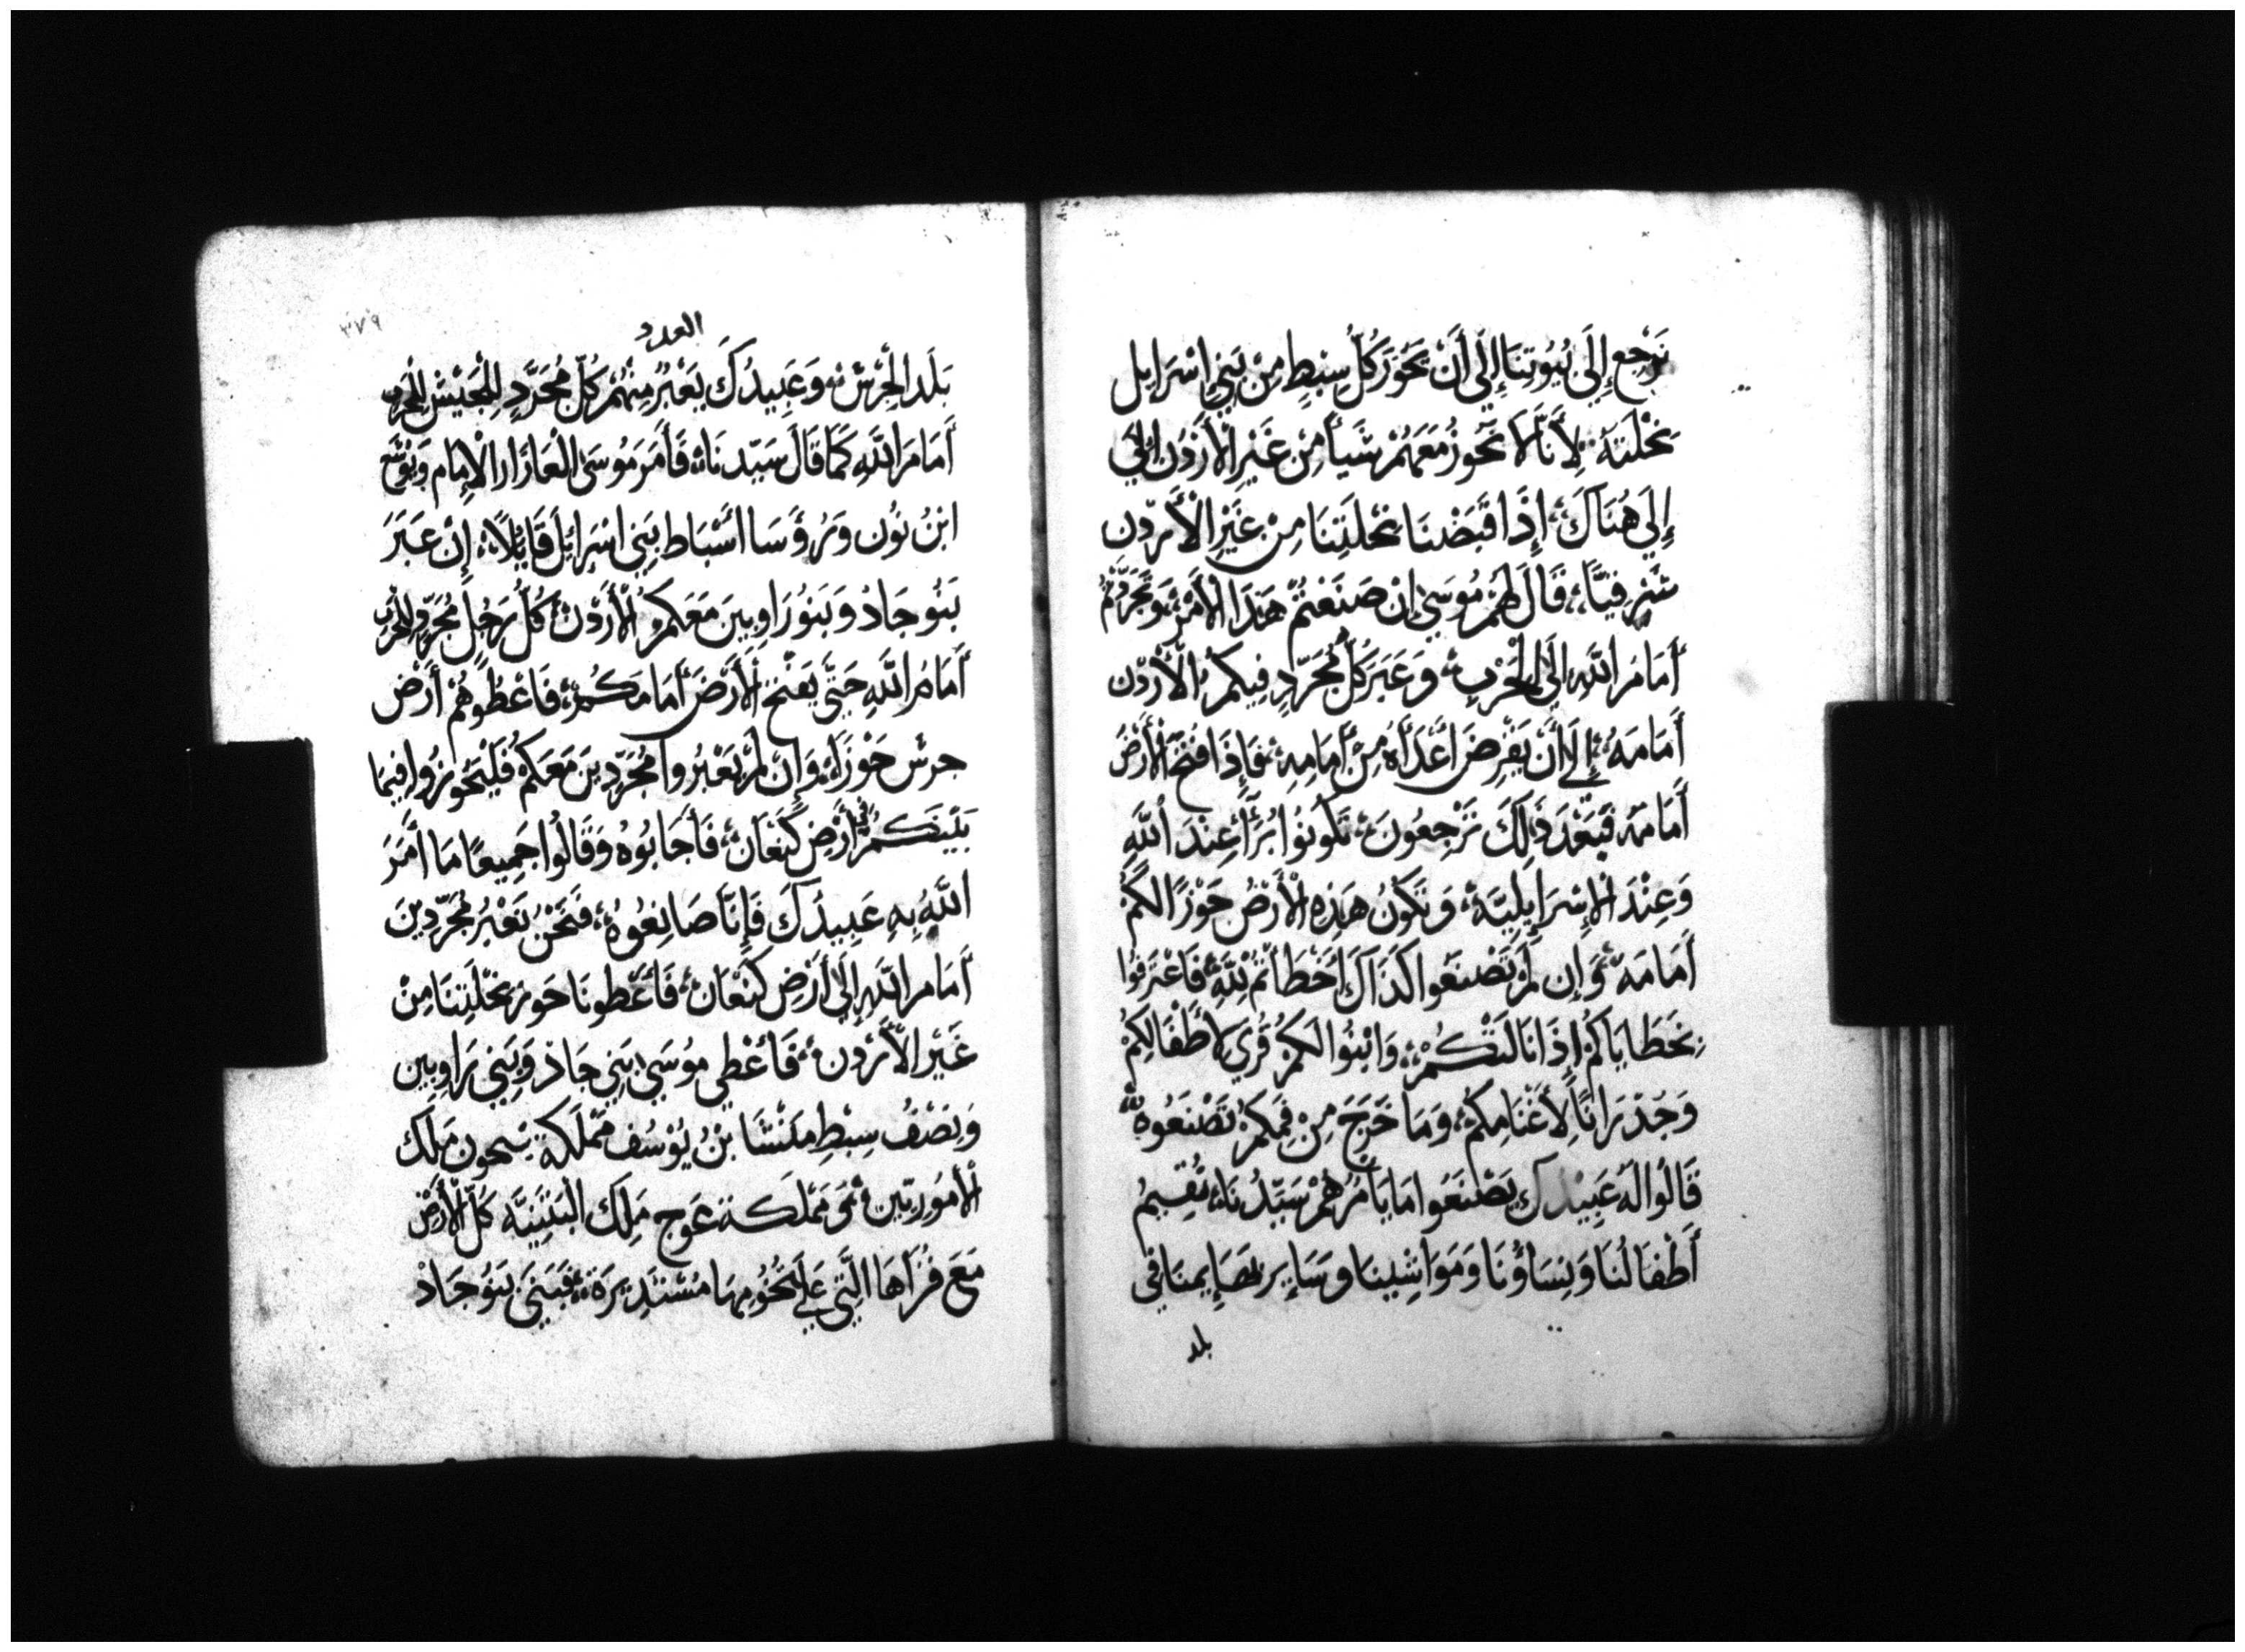 نَرْجِع إِلَى بُيُوتِنَا إِلَى أَنْ تَحُوزَ كُلّ سِبْطٍ مِنْ بَنِي اسْرَايِل
نِحْلَتَهُ لِأَنَّا لَا نَحُوزُ مَعَهُمْ شَيأً مِنْ غَيْرِ الْأَرْدُن الَّتِي
إِلَى هُنَاكَ، إِذَا قَبَضْنَا نِحْلَتِنَا مِنْ غَيْرِ الْأَرْدُن
شَرْقِيًّا، قَالَ لَهُمْ مُوسَى إِنْ صَنَعْتُمْ هَذَا الْأَمْرْ وَتَجَرَّدْتُمْ
أَمَامَ اللَّهِ إِلَى الْحَرْبِ، وَعَبَرَ كُلّ مُجَرَّدٍ فِيكُمْ الْأَرْدُن
أَمَامَهُ إِلَى أَنْ يَقْرِضَ أَعْدَاهُ مِنْ أَمَامِهِ، فَإِذَا فَتَحَ الْأَرْضَ
أَمَامَهُ فَبَعْدَ ذَلِكَ تَرْجِعُونَ، تَكُونُوا بُرَأَ عِنْدَ اللَّهِ
وَعِنْدَ الْإِسْرَايِلِيَّة، وَتَكُونُ هَذِهِ الْأَرْضُ حَوْزًا لَكُمْ
أَمَامَهُ وَإِن لَمْ تَصْنَعُوا كَذَاكَ أَخْطَأْتُمْ لِلَّهِ فَاعْتَرِفُوا
بِخَطَايَاكُمْ إِذَا نَالَتْكُمْ، وَابْنُوا لَكُمْ قُرَى لِأَطْفَالِكُمْ
وَجُدْرَانًا لِأَغْنَامِكُمْ، وَمَا خَرَجَ مِنْ فَمِكُمْ تَصْنَعُوهُ
قَالُوا لَهُ عَبِيْدكَ يَصْنَعُوا مَا يَأمُرُهُمْ سَيِّدُنَا، تُقِيمُ
أَطْفَالُنَا وَنِسَاؤُنَا وَمَوَاشِينَا وَسَايِر بَهَايِمنَا فِي
بلد
العدد
٣٧٩
بَلَد الْجِرْش وَعَبِيدُكَ يَعْبُرُ مِنْهُمْ كُلّ مُجَرَّدٍ لِلْجَيْشِ لِلْحَرْبِ
أَمَامَ اللَّهِ كَمَا قَالَ سَيِّدنَا، فَأَمَرَ مُوسَى الْعَازَار الْإِمَام وَيُوشَع
ابْنُ نُون وَرُؤَسَا أَسْبَاط بَنِي اسْرَايِل قَايِلًا، إِنْ عَبَرَ
بَنُو جَادْ وَبَنُو رَاوِبِينَ مَعَكُمْ الْأَرْدُنْ كُلّ رَجُلٍ مُجَرَّدٍ لِلْحَرْبِ
أَمَامَ اللَّهِ حَتَّى يَفْتَحَ الْأَرْضَ أَمَامَكُمْ، فَاعْطُوهُمْ أَرْض
جرْش حَوْزًا، وَإِن لَمْ يَعْبُرُوا مُجَرَّدِينَ مَعَكُمْ فَلْيَحُوزُوا فِيمَا
بَيْنَكُمْ فى أَرْضِ كَنْعَان، فَأَجَابُوهُ وَقَالُوا جَمِيعًا مَا أَمَرَ
اللَّهُ بِهِ عَبِيدُكَ فَإِنَّا صَانِعُوهُ، فَنَحْنُ نَعْبُرُ مُجَرَّدِينَ
أَمَامَ اللَّهِ إِلَى أَرْضِ كَنْعَان، فَأَعْطُونَا حَوز نِحْلَتِنَا مِنْ
غَيْرِ الْأَرْدُن، فَأَعْطَى مُوسَى بَنِي جَادْ وَبَنِي رَاوِبِين
وَنِصْفُ سِبْطِ مَنَشَّا بْنُ يُوْسُف مَمْلَكَة سِيحون مَلِك
الْأَمُورِيِّين وَمَمْلَكَة عَوج مَلِك الْبَثَنِيَّه كُلّ الْأَرْضْ
مَعَ قُرَاهَا الَّتِي عَلَى تُخُومِهَا مُسْتَدِيرَة، فَبَنَى بَنُو جَادْ